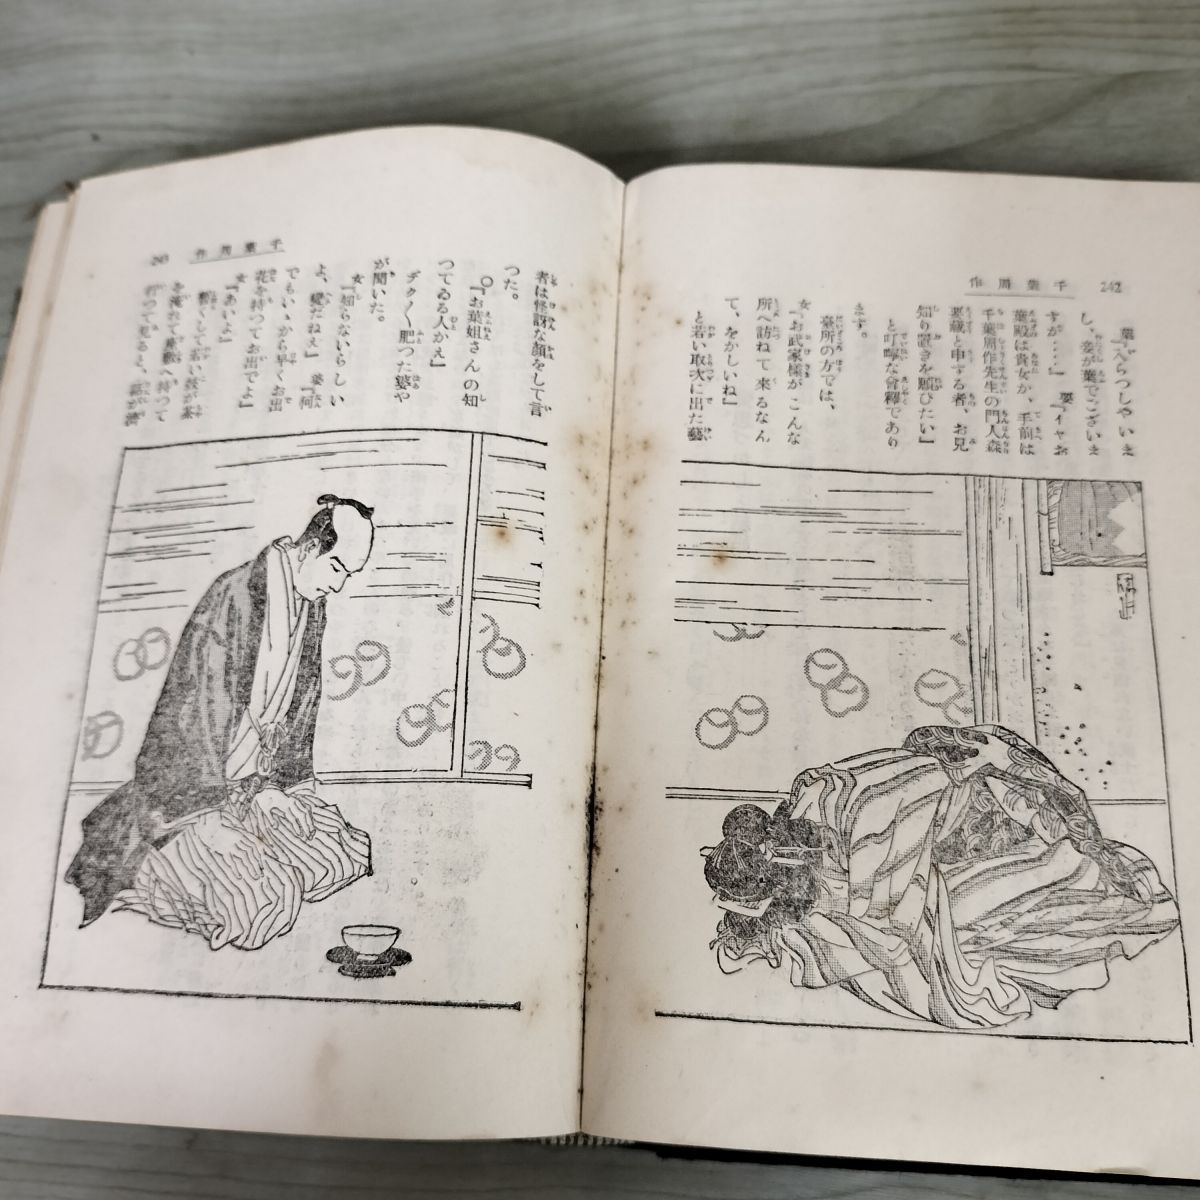 千葉周作
242
葉『入らつしやいえ
し、妾が葉でございえ
すが‥‥』 要『イヤお
葉殿は貴女か、手前は
千葉周作先生の門人森
要蔵と申する者、お見
知り置きを願ひたい』
と叮嚀な會釋であり
ます。
臺所の方では、
女『お武家様がこんな
所へ訪ねて來るなん
て、をかしいね』
と若い取次に出た藝
千葉周作
243
者は怪訝な顔をして言
つた。
○『お葉姐さんの知
つてゐる人かえ』
ヂク〱肥つた婆や
が聞いた。
女『知らないらしい
よ、變だねえ』 婆『何
でもいゝから早くお出
花を持つてお出でよ』
女『あいよ』
軈がて若い妓が茶
を淹れて座敷へ持つて
行つて見ると、